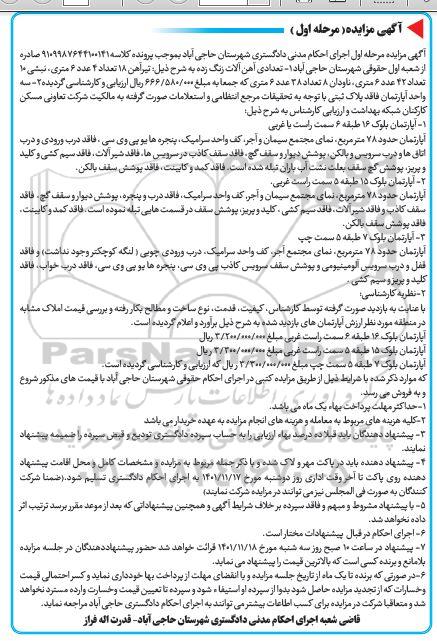 آگهی مزایده ( مرحله اول )
آگهی مزایده مرحله اول اجرای احکام مدنی دادگستری شهرستان حاجی آباد بموجب پرونده کلاسه ۹۱۰۹۹۸۷۶۴۴۱۰۰۱۴۱ صادره
از شعبه اول حقوقی شهرستان حاجی آباد ۱- تعدادی آهن آلات زنگ زده به شرح ذیل: تیرآهن ۱۸ تعداد ۴ عدد ۶ متری، نبشی ۱۰
تعداد ۴۲ عدد ۶ متری ، ناودان ۸ تعداد ۳۸ عدد ۶ متری که جمعا به مبلغ ۶۶۶/۵۸۰/۰۰۰ ریال ارزیابی و کارشناسی گردیده ۲- سه
واحد آپارتمان فاقد پلاک ثبتی با توجه به تحقیقات مرجع انتظامی و استعلامات صورت گرفته به مالکیت شرکت تعاونی مسکن
کارکنان شبکه بهداشت و ارزیابی کارشناس به شرح ذیل:
۱- آپارتمان بلوک ۱۶ طبقه ۶ سمت راست یا غربی
آپارتمان حدود ۷۸ مترمربع ، نمای مجتمع سیمان و آجر، کف واحد سرامیک، پنجره ها یو پی وی سی ، فاقد درب ورودی و درب
اتاق ها و درب سرویس و بالکن، پوشش دیوار و سقف گچ ، فاقد سقف کاذب در سرویس ها ، فاقد شیر آلات ، فاقد سیم کشی و کلید
و پریز، پوشش گچ سقف بعلت نشت آب باران تبله شده است . فاقد کمد و کابینت ، فاقد پوشش سقف بالکن.
۲- آپارتمان بلوک ۱۵ طبقه ۵ سمت راست غربی.
آپارتمان حدود ۷۸ مترمربع، نمای مجتمع سیمان و آجر، کف واحد سرامیک، فاقد درب و پنجره، پوشش دیوار و سقف گچ ، فاقد
سقف کاذب و فاقد شیر آلات ، فاقد سیم کشی ، کلید و پریز، پوشش سقف در قسمت هایی تبله نموده است . فاقد کمد و کابینت،
فاقد پوشش سقف بالکن.
۳- آپارتمان بلوک ۷ طبقه ۵ سمت چپ
آپارتمان حدود ۷۸ مترمربع، نمای مجتمع آجر، کف واحد سرامیک، درب ورودی چوبی ( لنگه کوچکتر وجود نداشت) و فاقد
قفل و درب سرویس آلومینیومی و پوشش سقف سرویس کاذب پی وی سی ، پنجره ها یو پی وی سی ، فاقد درب خواب، فاقد
کلید و پریز و سیم کشی .
۲- نظریه کارشناسی:
با عنایت به بازدید صورت گرفته توسط کارشناس، کیفیت، قدمت، نوع ساخت و مطالح بکار رفته و بررسی قیمت املاک مشابه
در منطقه مورد نظر ارزش آپارتمان های بازدید شده به شرح ذیل برآورد و اعلام گردیده است.
آپارتمان بلوک ۱۶ طبقه ۶ سمت راست غربی مبلغ ۳/۲۰۰/۰۰۰/۰۰۰ ریال
آپارتمان بلوک ۱۵ طبقه ۵ سمت راست غربی مبلغ ۳/۳۰۰/۰۰۰/۰۰۰ ریال
آپارتمان بلوک ۷ طبقه ۵ سمت چپ مبلغ ۳/۳۰۰/۰۰۰/۰۰۰ ریال که ارزیابی و کارشناسی گردیده است.
که موارد ذکر شده با شرایط ذیل از طریق مزایده کتبی در اجرای احکام حقوقی شهرستان حاجی آباد با قیمت های مذکور شروع
و به فروش می رسد.
۱- حداکثر مهلت پرداخت بهاء یک ماه می باشد.
۲- کلیه هزینه های مربوط به معامله و هزینه های انجام مزایده به عهده خریدار می باشد
۳- پیشنهاد دهندگان باید قبلا ده درصد بهاء ارزیابی را به حساب سپرده دادگستری تودیع و قبض سپرده را ضمیمه پیشنهاد
نمایند.
۴- پیشنهاد دهنده باید در پاکت مهر و لاک شده و با ذکر جمله مربوط به مزایده و مشخصات کامل و محل اقامت پیشنهاد
دهنده روی پاکت تا آخر وقت اداری روز دوشنبه مورخ ۱۴۰۱/۱۱/۱۷ به اجرای احکام دادگستری تسلیم شود.(ضمنا شرکت
کنندگان به صورت فی المجلس نیز می توانند در مزایده شرکت نمایند)
۵- با پیشنهاد مشروط و مبهم و فاقد سپرده بر خلاف شرایط آگهی و همچنین پیشنهاداتی که بعد از موعد مقرر برسد ترتیب اثر
داده نخواهد شد.
۶- اجرای احکام در قبال پیشنهادات مختار است.
۷- پیشنهاد در ساعت ۱۰ صبح روز سه شنبه مورخ ۱۴۰۱/۱۱/۱۸ قرائت خواهد شد حضور پیشنهاددهندگان در جلسه مزایده
بلامانع و برنده کسی است که بالاترین قیمت را پیشنهاد می نماید.
۶-در صورتی که برنده تا یک ماه از تاریخ جلسه مزایده و یا انقضای مهلت از پرداخت بها خودداری نماید و کسر احتمالی قیمت
وخسارات که از تجدید مزایده حاصل شود بدوا از سپرده او استیفاء شود و سپرده تا تعیین قیمت وخسارت وارده مسترد نخواهد
شد و متعاقبا شرکت در مزایده برای کسب اطلاعات بیشتر می توانند به اجرای احکام دادگستری حاجی آباد مراجعه نمایند.
قاضی شعبه اجرای احکام مدنی دادگستری شهرستان حاجی آباد- قدرت اله فراز